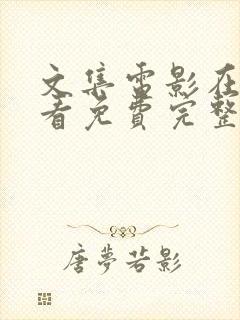 文集雷影在
看免费完整
唐夢若影